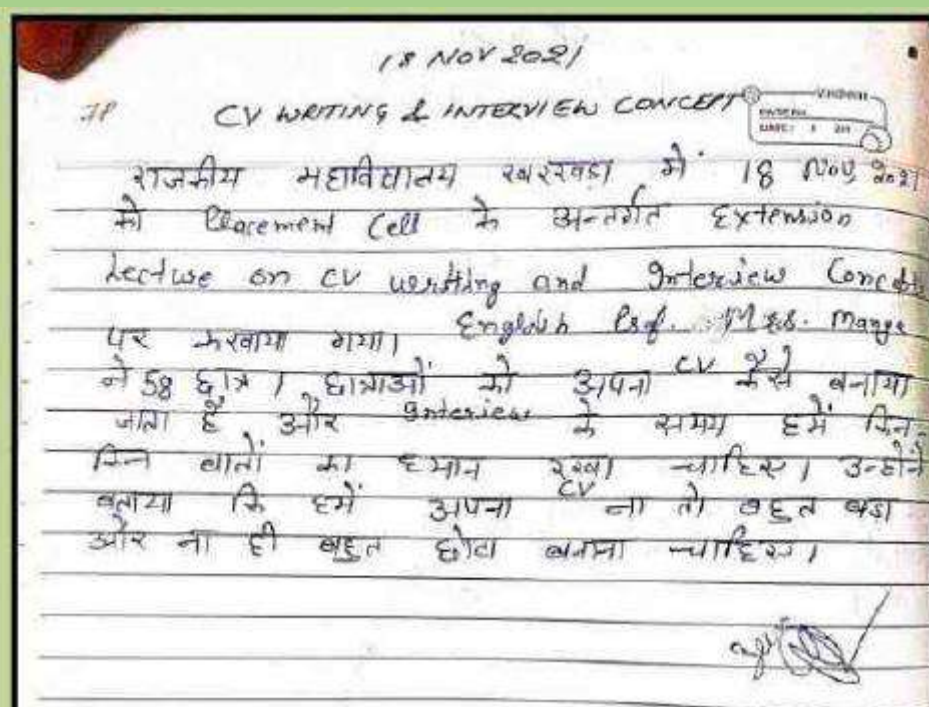 18 NOV 2021
CV WRITING & INTERVIEW CONCEPT
राजकीय महाविद्यालय खरखड़ा में 18 Nov, 2021
को Placement Cell के अन्तर्गत Extension
Lecture on CV writting and Interview Concepts
पर करवाया गया। English Prof. Mrs. Mange
ने 58 छात्र / छात्राओं को अपना CV कैसे बनाया
जाता है और Interview के समय हमें किन-
किन बातों का ध्यान रखना चाहिए। उन्होंने
बताया कि हमें अपना CV ना तो बहुत बडा
और ना ही बहुत छोटा बनाना चाहिए।